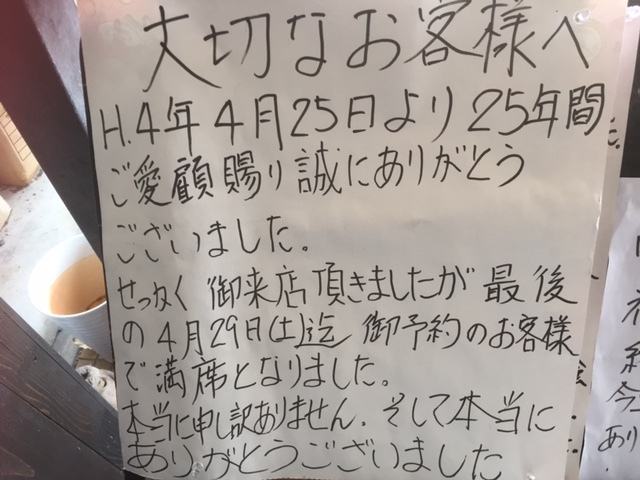 大切なお客様へ
H.4年4月25日より25年間
ご愛顧賜り誠にありがとう
ございました。
せっかく御来店頂きましたが最後
の4月29日(土)迄 御予約のお客様
で満席となりました。
本当に申し訳ありません。そして本当に
ありがとうございました